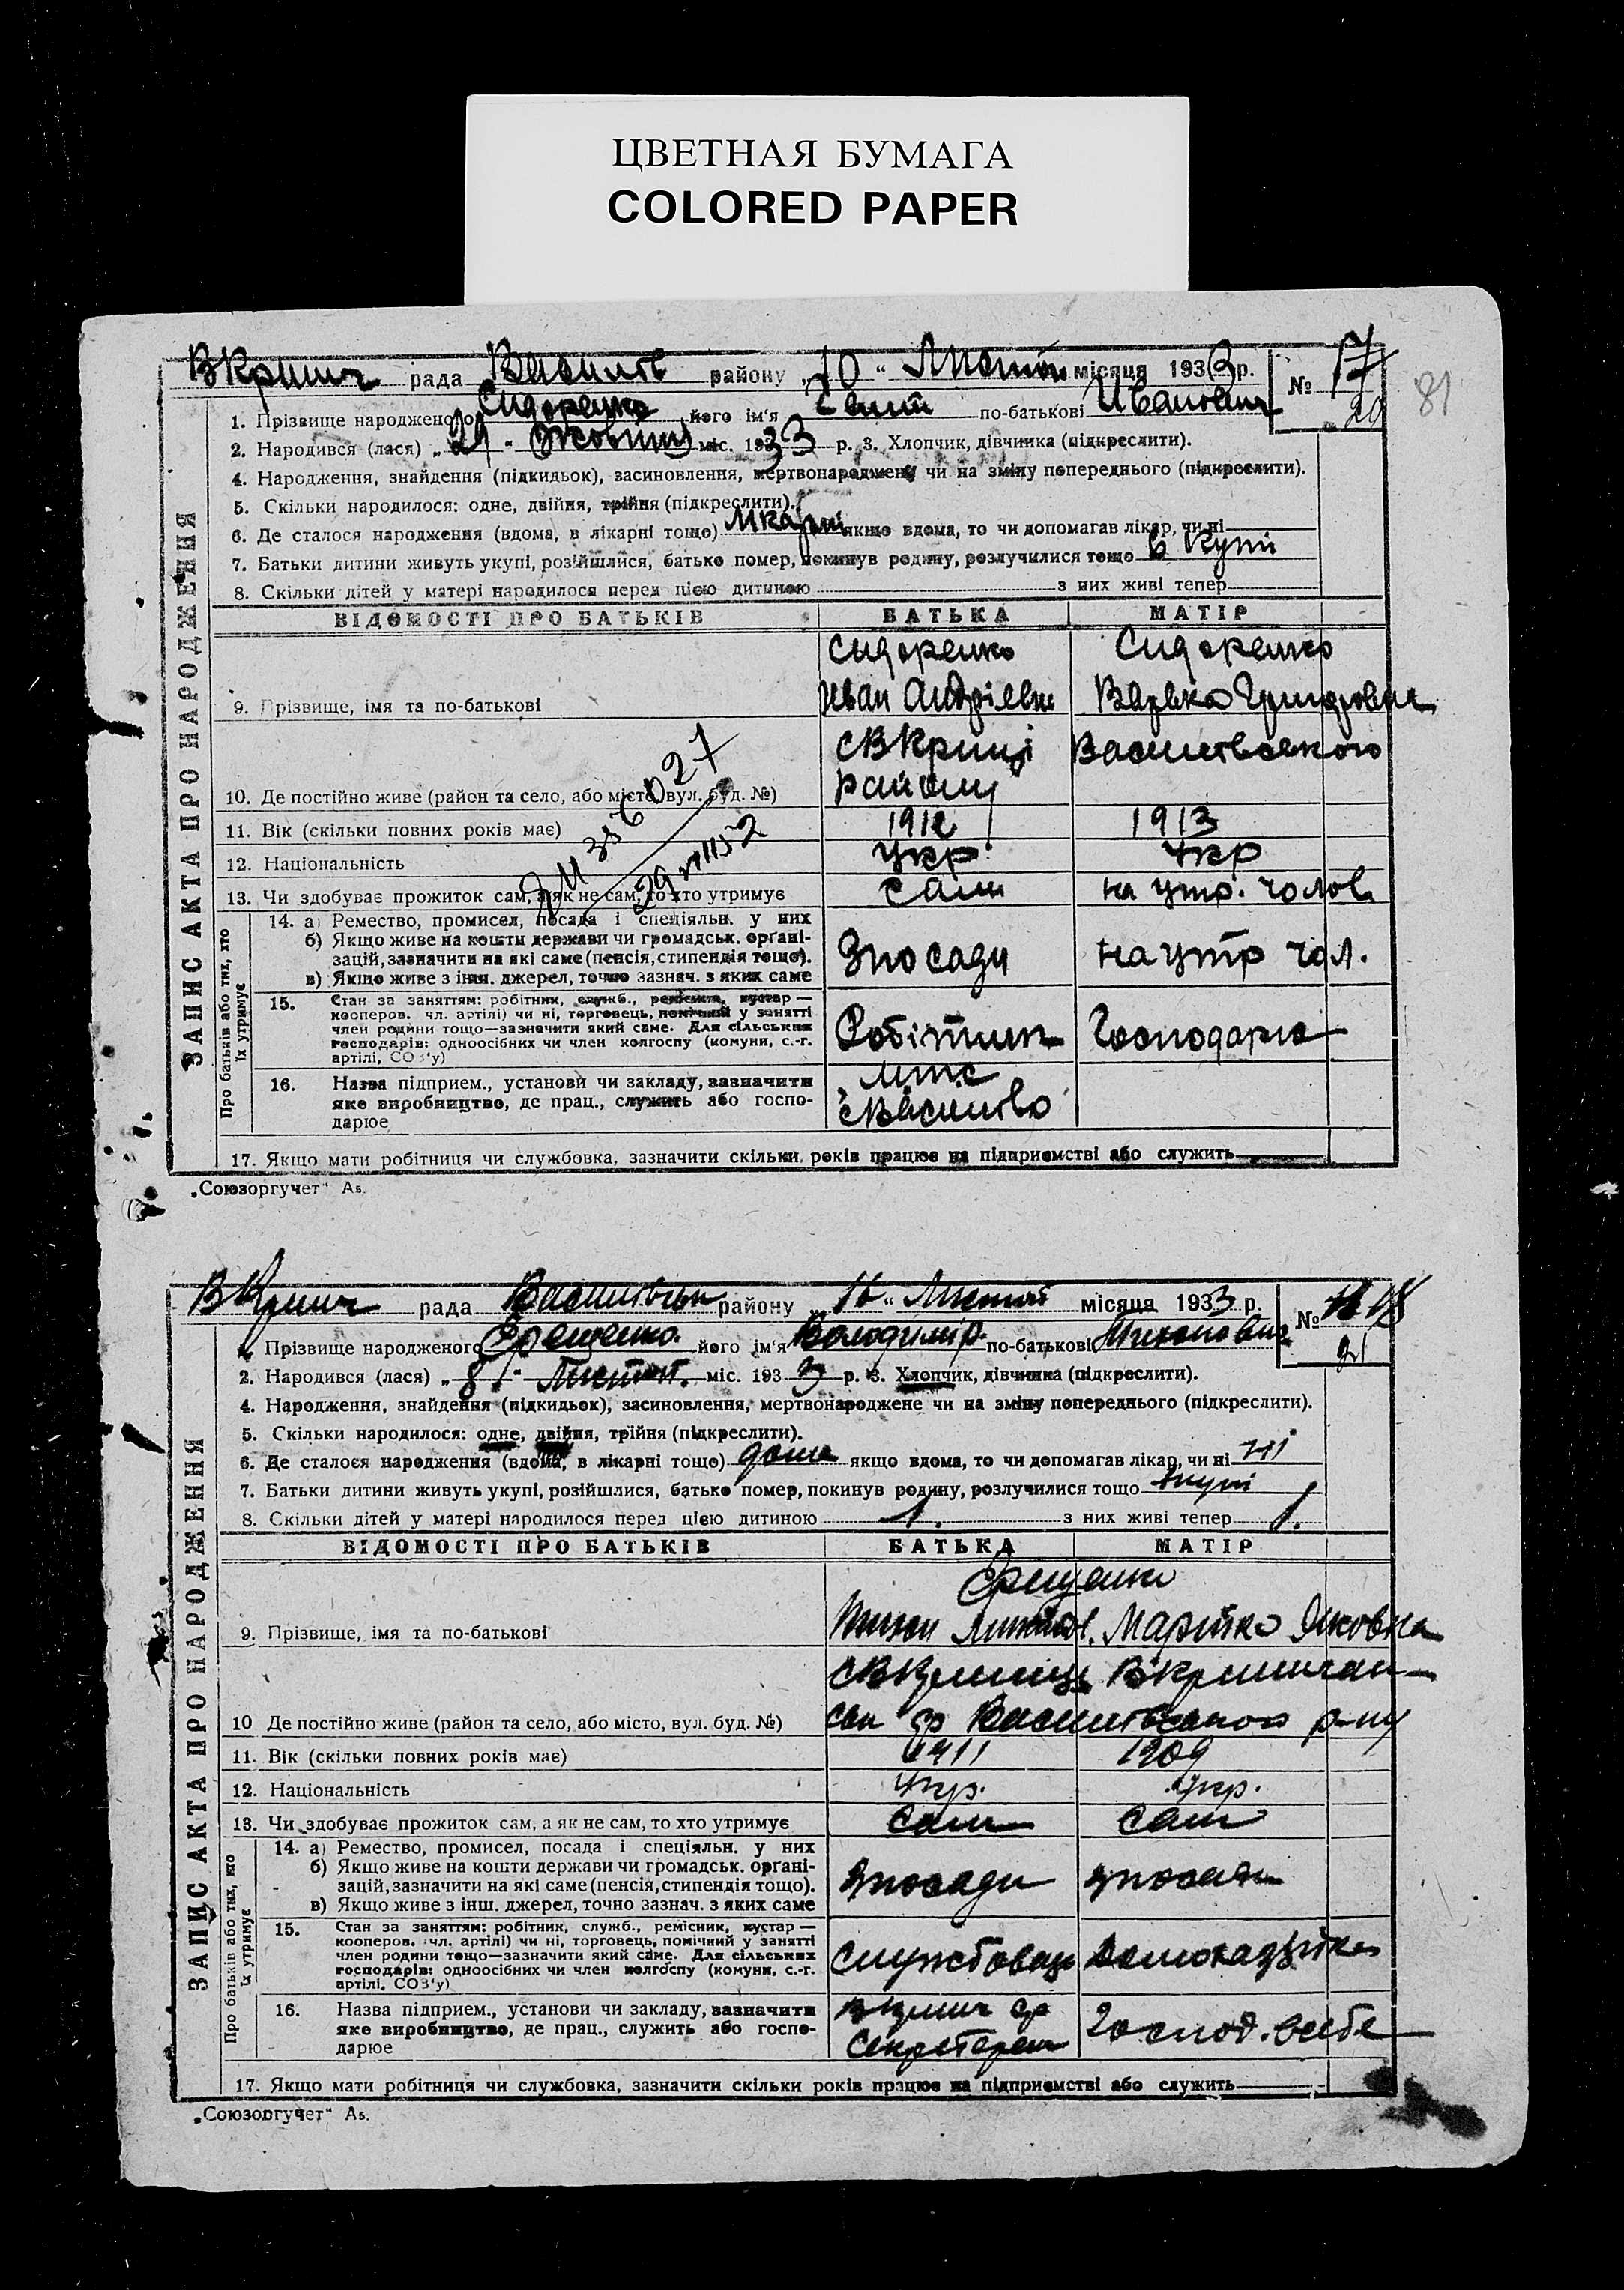 ЦВЕТНАЯ БУМАГА
COLORED PAPER
ВКринич рада Василів району „10“ Листоп місяця 1933 р. № 17
20
81
1. Прізвище народженого Сидоренко його ім'я по-батькові Иванович
2. Народився (лася) „29“ Жовтня міс. 1933 р. 3. Хлопчик, дівчинка (підкреслити).
4. Народження, знайдення (підкидьок), засиновлення, мертвонароджене чи на зміну попереднього (підкреслити).
5. Скільки народилося: одне, двійня, трійня (підкреслити).
6. Де сталося народження (вдома, в лікарні тощо) якщо вдома, то чи допомагав лікар, чи ні
7. Батьки дитини живуть укупі, розійшлися, батько помер, покинув родину, розлучилися тощо в купі
8. Скільки дітей у матері народилося перед цією дитиною з них живі тепер
ЗАПИС АКТА ПРО НАРОДЖЕННЯ
ВІДОМОСТІ ПРО БАТЬКІВ БАТЬКА МАТІР
Сидоренко Сидоренко
9. Прізвище, імя та по-батькові Иван Андрієвич Варвка Григоровна
СВКриниці Василівського
10. Де постійно живе (район та село, або місто, вул. буд. №) району
11. Вік (скільки повних років має) 1912 1913
12. Національність Укр Укр
13. Чи здобуває прожиток сам, а як не сам, то хто утримує Сам на утр. чолов
Про батьків або тих, хто їх утримує
14. а) Ремество, промисел, посада і спеціяльн. у них
б) Якщо живе на кошти держави чи громадськ. організацій, зазначити на які саме (пенсія, стипендія тощо). Зпосади на утр чол.
в) Якщо живе з інш. джерел, точно зазнач. з яких саме
15. Стан за заняттям: робітник, служб., ремісник, кустар —
кооперов. чл. артілі) чи ні, торговець, помічний у занятті
член родини тощо—зазначити який саме. Для сільських
господарів: одноосібних чи член колгоспу (комуни, с.-г. Робітник Господарка
артілі, СОЗ'у)
16. Назва підприєм., установи чи закладу, зазначити МТС
яке виробництво, де прац., служить або госпо-
дарює
17. Якщо мати робітниця чи службовка, зазначити скільки років працює на підприємстві або служить
„Союзоргучет“ А5.
ВКринич рада Василівськ району „16“ Листоп місяця 1933 р. № 18
21
1. Прізвище народженого його ім'я Володимір по-батькові Тихонович
2. Народився (лася) „8“ Листоп. міс. 1933 р. 3. Хлопчик, дівчинка (підкреслити).
4. Народження, знайдення (підкидьок), засиновлення, мертвонароджене чи на зміну попереднього (підкреслити).
5. Скільки народилося: одне, двійня, трійня (підкреслити).
6. Де сталося народження (вдома, в лікарні тощо) дома якщо вдома, то чи допомагав лікар, чи ні ні
7. Батьки дитини живуть укупі, розійшлися, батько помер, покинув родину, розлучилися тощо вкупі
8. Скільки дітей у матері народилося перед цією дитиною 1. з них живі тепер 1.
ЗАПИС АКТА ПРО НАРОДЖЕННЯ
ВІДОМОСТІ ПРО БАТЬКІВ БАТЬКА МАТІР
9. Прізвище, імя та по-батькові Тихон Марійка Яковна
СВКриниця ВКриничан-
10 Де постійно живе (район та село, або місто, вул. буд. №) ськ ср Василівського р-ну
11. Вік (скільки повних років має) 1911 1909
12. Національність Укр. Укр.
13. Чи здобуває прожиток сам, а як не сам, то хто утримує Сам Сам
Про батьків або тих, хто їх утримує
14. а) Ремество, промисел, посада і спеціяльн. у них
б) Якщо живе на кошти держави чи громадськ. організацій, зазначити на які саме (пенсія, стипендія тощо). Зпосади зпосади
в) Якщо живе з інш. джерел, точно зазнач. з яких саме
15. Стан за заняттям: робітник, служб., ремісник, кустар —
кооперов. чл. артілі) чи ні, торговець, помічний у занятті
член родини тощо—зазначити який саме. Для сільських
господарів: одноосібних чи член колгоспу (комуни, с.-г. Службовець
артілі, СОЗ'у)
16. Назва підприєм., установи чи закладу, зазначити ВКринич ср
яке виробництво, де прац., служить або госпо- Секретарем Господ. себе
дарює
17. Якщо мати робітниця чи службовка, зазначити скільки років працює на підприємстві або служить
„Союзоргучет“ А5.